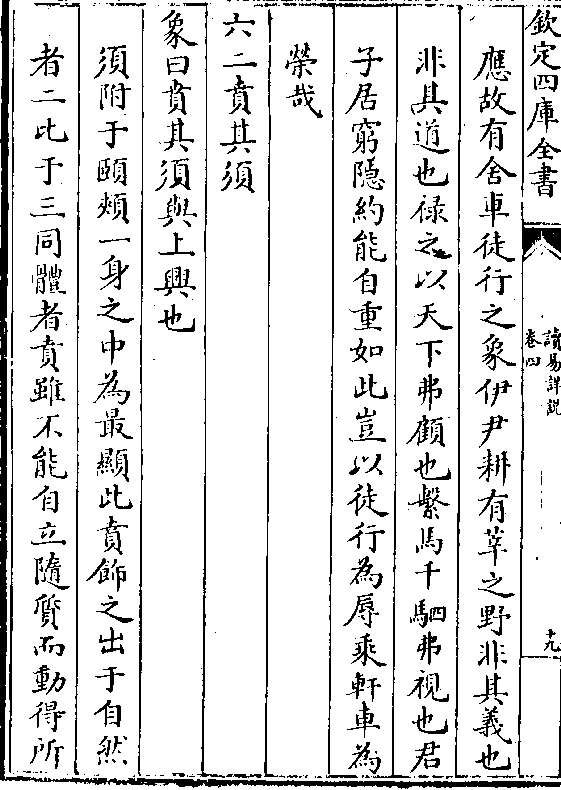 欽定四庫全書
讀易詳說
卷四
十九
應故有舍車徒行之象伊尹耕有莘之野非其義也
非其道也祿之以天下弗顧也繫馬千駟弗視也君
子居窮隱約能自重如此豈以徒行為辱乘軒車為
榮哉
六二賁其須
象曰賁其須與上興也
須附于頤頰一身之中為最顯此賁飾之出于自然
者二比于三同體者賁雖不能自立隨質而動得所